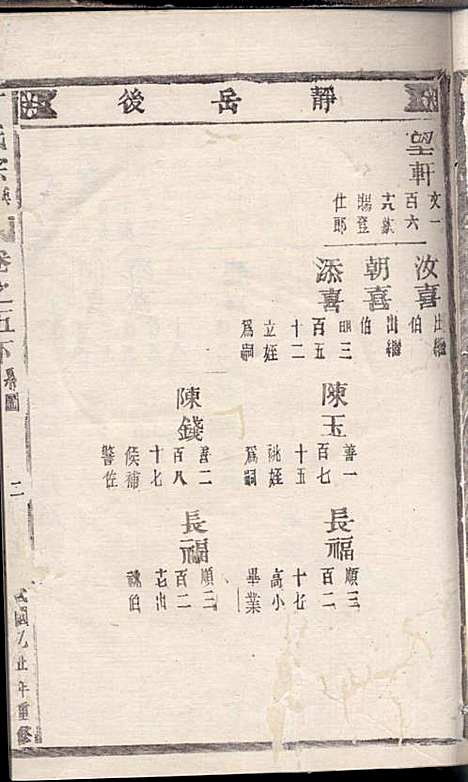 靜岳後
望軒
文一
百六
賜登
仕郎
汝喜
出繼
伯
朝喜
出繼
伯
添喜
明三
百五
十二
立姪
為嗣
陳玉
善一
百七
十五
祧姪
為嗣
陳錢
善二
百八
十七
候補
警佐
長福
順三
百二
十七
高小
畢業
長福
順三
百二
十七出
祧伯
卷之五下
系圖
二
民國乙丑年重修